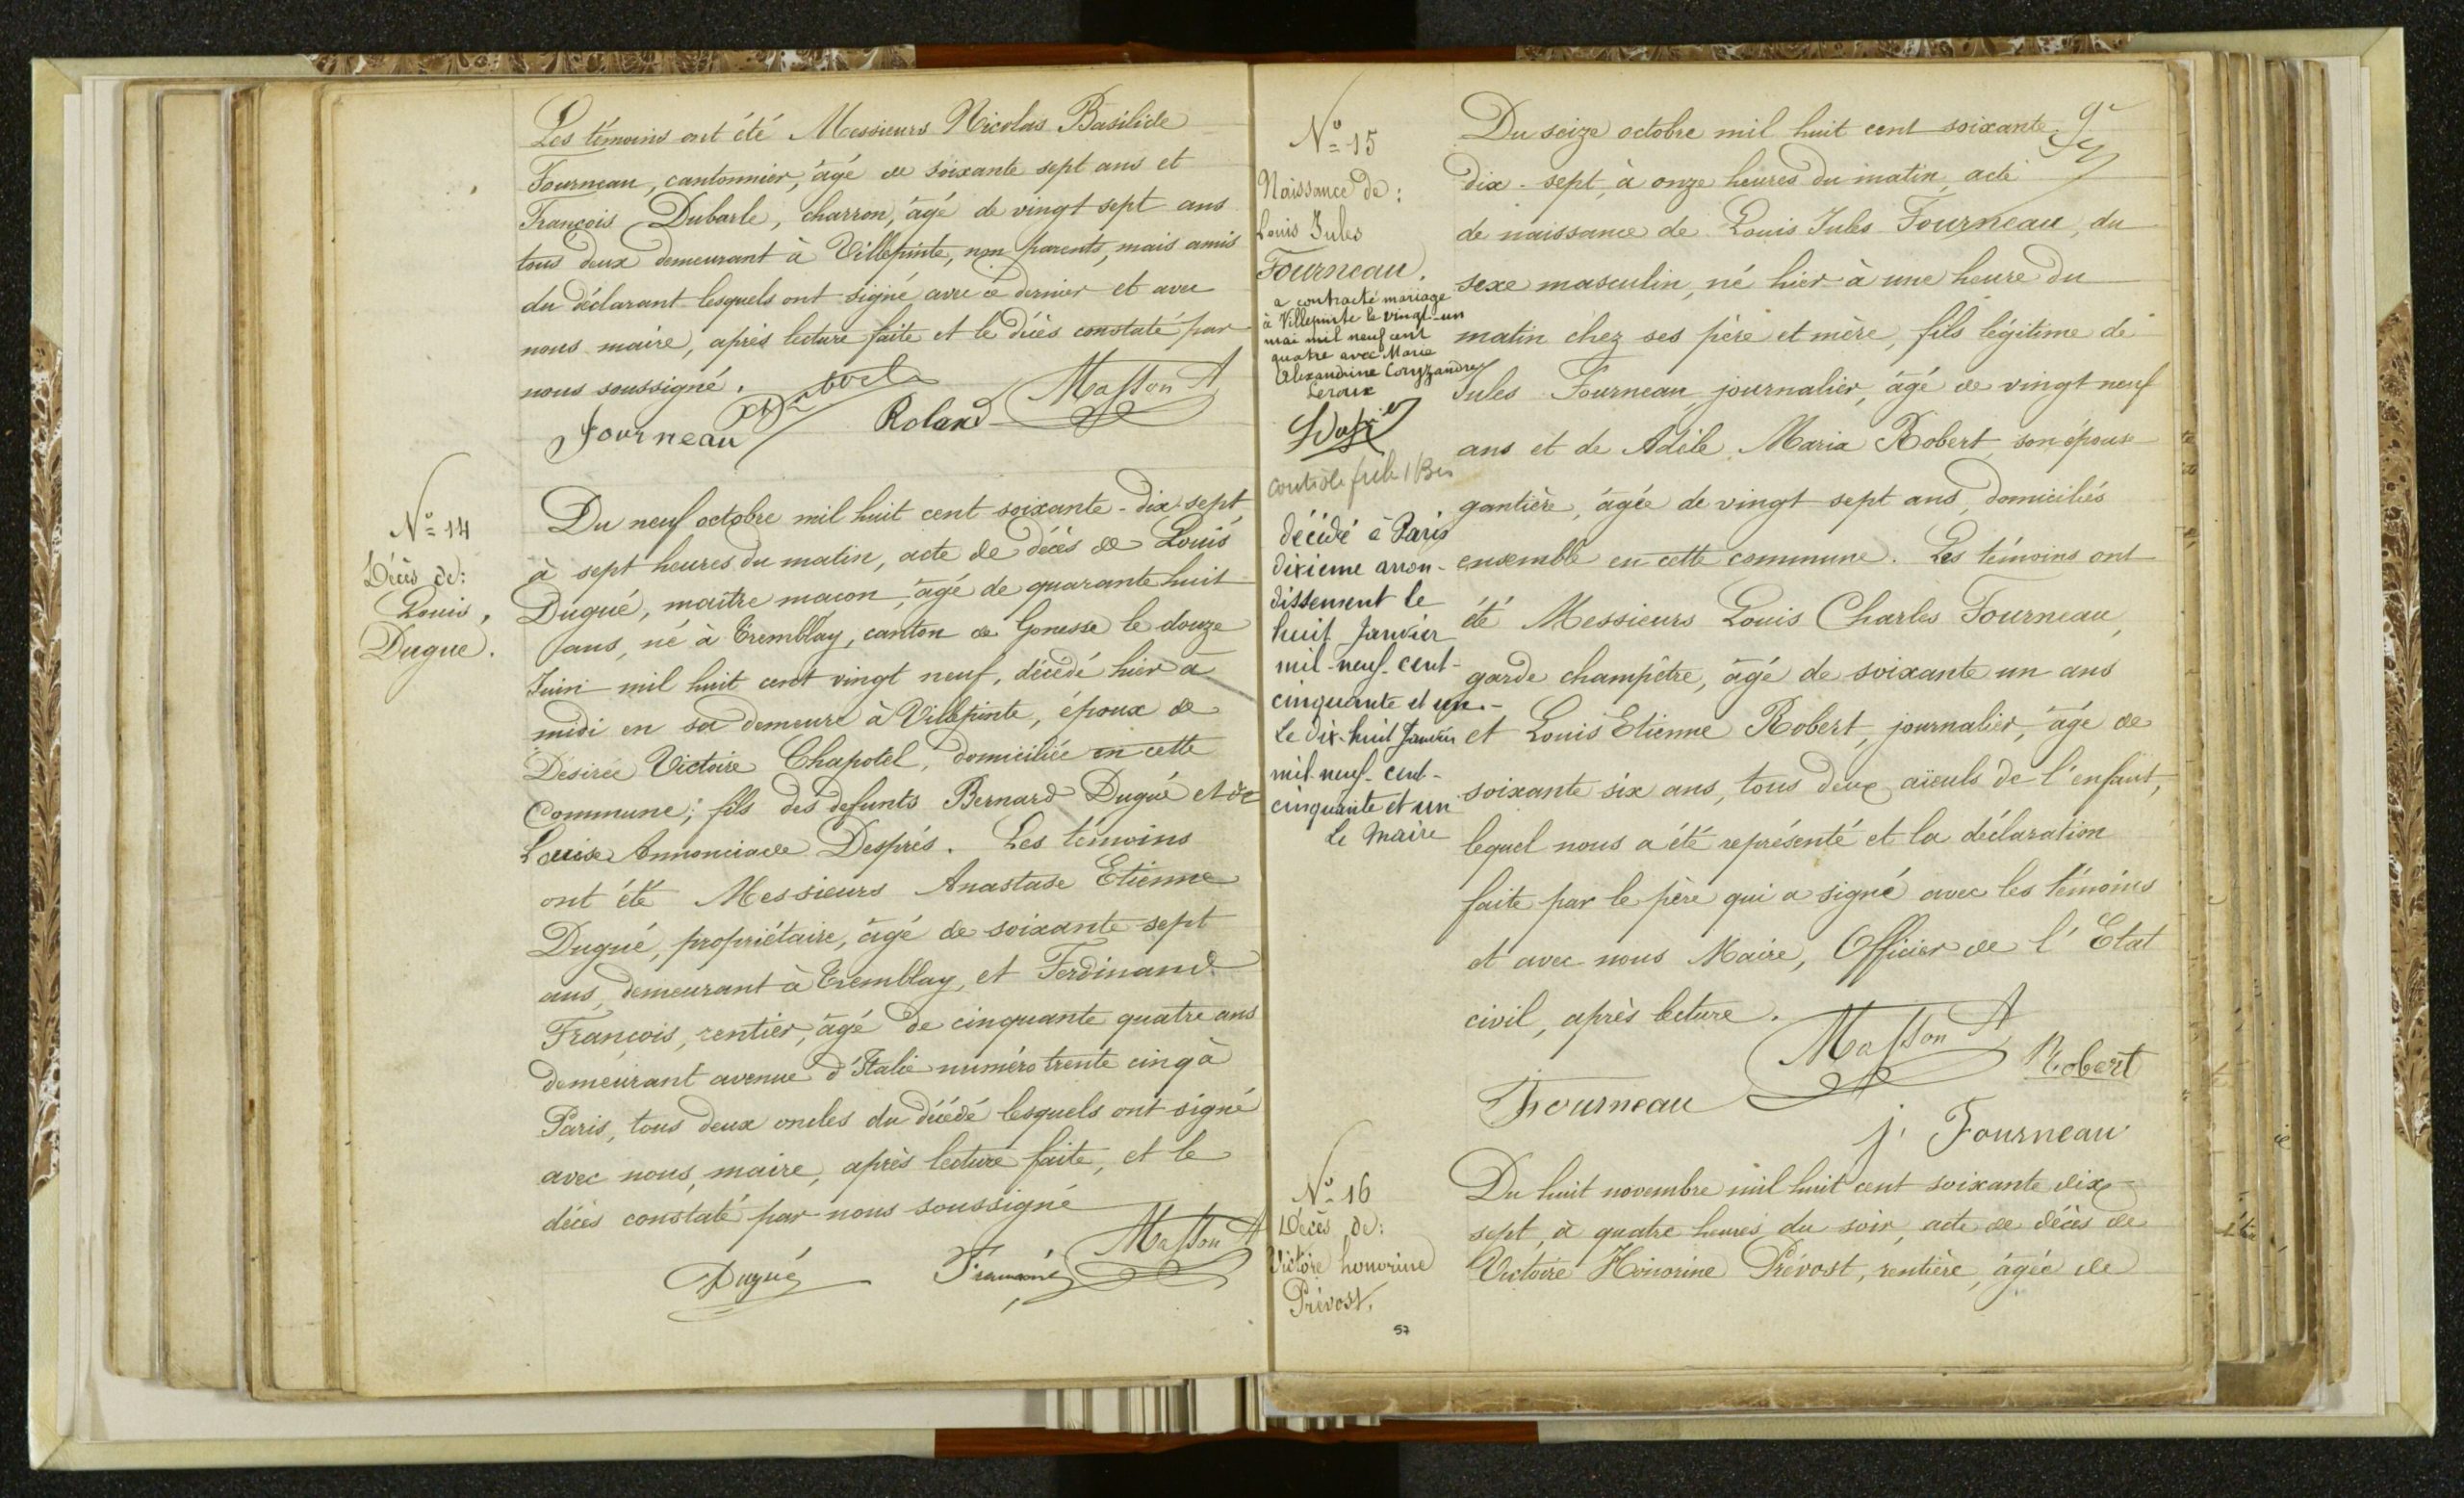 Les témoins ont été Messieurs Nicolas Basilide
Fourneau, cantonnier, âgé de soixante sept ans et
François Dubarle, charron, âgé de vingt sept ans
tous deux demeurant à Villepinte, non parents, mais amis
du déclarant lesquels ont signé avec ce dernier et avec
nous maire, après lecture faite et le décès constaté par
nous soussigné.
Fourneau
Roland
Masson A
N° 14
Décès de:
Louis,
Dugué.
Du neuf octobre mil huit cent soixante-dix-sept
à sept heures du matin, acte de décès de Louis
Dugué, maître maçon, âgé de quarante huit
ans, né à Tremblay, canton de Gonesse le douze
Juin mil huit cent vingt neuf, décédé hier à
midi en sa demeure à Villepinte, époux de
Désirée Victoire Chapotel, domiciliée en cette
Commune; fils des defunts Bernard Dugué et de
Louise Annonciade Després. Les témoins
ont été Messieurs Anastase Etienne
Dugué, propriétaire, âgé de soixante-sept
ans, demeurant à Tremblay, et Ferdinand
François, rentier, âgé de cinquante quatre ans
demeurant avenue d'Italie numéro trente cinq à
Paris, tous deux oncles du décédé lesquels ont signé
avec nous, maire, après lecture faite, et le
décès constaté par nous soussigné
Dugué
Masson A
N° 15
Naissance de:
Louis Jules
Fourneau.
a contracté mariage
à Villepinte le vingt-un
mai mil neuf cent
quatre avec Marie
Alexandrine Coryzandre
Leroux
contrôle
décédé à Paris
dixième arron-
dissement le
huit Janvier
mil-neuf-cent-
cinquante et un.-
Le Dix-huit Janvier
mil-neuf-cent-
cinquante et un
Le Maire
Du seize octobre mil huit cent soixante-
dix-sept, à onze heures du matin, acte
de naissance de Louis Jules Fourneau, du
sexe masculin, né hier à une heure du
matin chez ses père et mère, fils légitime de
Jules Fourneau, journalier, âgé de vingt neuf
ans et de Adèle Maria Robert, son épouse
gantière, âgée de vingt sept ans, domiciliés
ensemble en cette commune. Les témoins ont
été Messieurs Louis Charles Fourneau,
garde champêtre, âgé de soixante un ans
et Louis Etienne Robert, journalier, âgé de
soixante six ans, tous deux aïeuls de l'enfant,
lequel nous a été représenté et la déclaration
faite par le père qui a signé avec les témoins
et avec nous Maire, Officier de l'Etat
civil, après lecture.
Masson A
Robert
Fourneau
j. Fourneau
N° 16
Décès de:
Victoire honorine
Prévost.
57
Du huit novembre mil huit cent soixante dix-
sept, à quatre heures du soir, acte de décès de
Victoire Honorine Prévost, rentière, âgée de